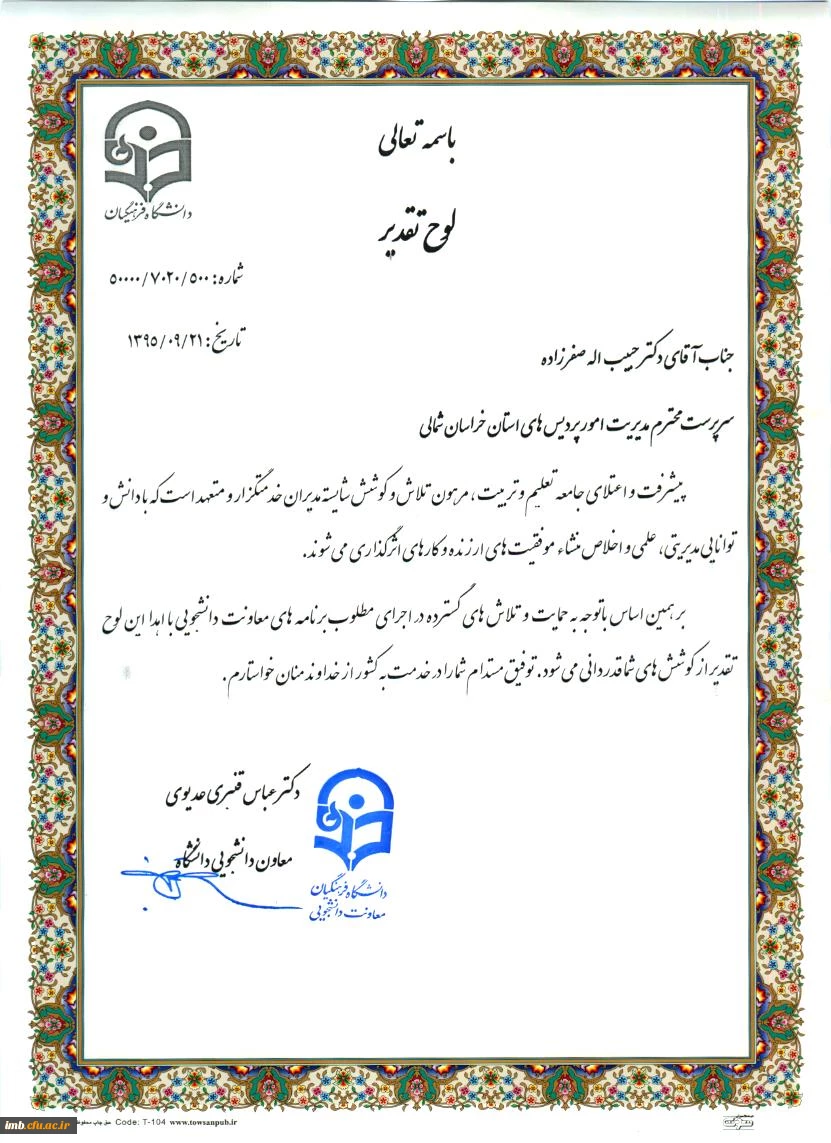 باسمه تعالی
دانشگاه فرهنگیان
لوح تقدیر
شماره: ۵۰۰۰۰/۷۰۲۰/۵۰۰
تاریخ: ۱۳۹۵/۰۹/۲۱
جناب آقای دکتر حبیب اله صفرزاده
سرپرست محترم مدیریت امور پردیس های استان خراسان شمالی
پیشرفت و اعتلای جامعه تعلیم و تربیت، مرهون تلاش و کوشش شایسته مدیران خدمتگزار و متعهد است که با دانش و
توانایی مدیریتی، علمی و اخلاص منشاء موفقیت های ارزنده و کارهای اثرگذاری می شوند.
بر همین اساس با توجه به حمایت و تلاش های گسترده در اجرای مطلوب برنامه های معاونت دانشجویی با اهدا این لوح
تقدیر از کوشش های شما قدردانی می شود. توفیق مستدام شما را در خدمت به کشور از خداوند منان خواستارم.
دکتر عباس قنبری عدیوی
معاون دانشجویی دانشگاه
دانشگاه فرهنگیان
معاونت دانشجویی
imb.cfu.ac.ir
حق چاپ محفوظ Code: T-104 www.towsanpub.ir